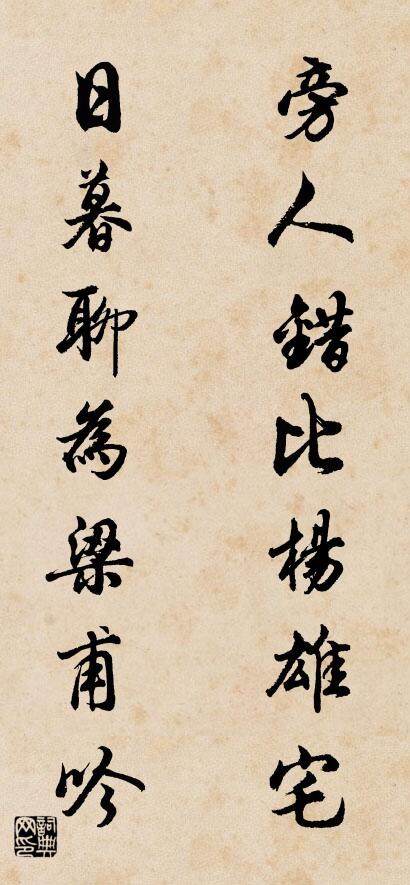 旁人錯比楊雄宅
日暮聊為梁甫吟
詞典网印